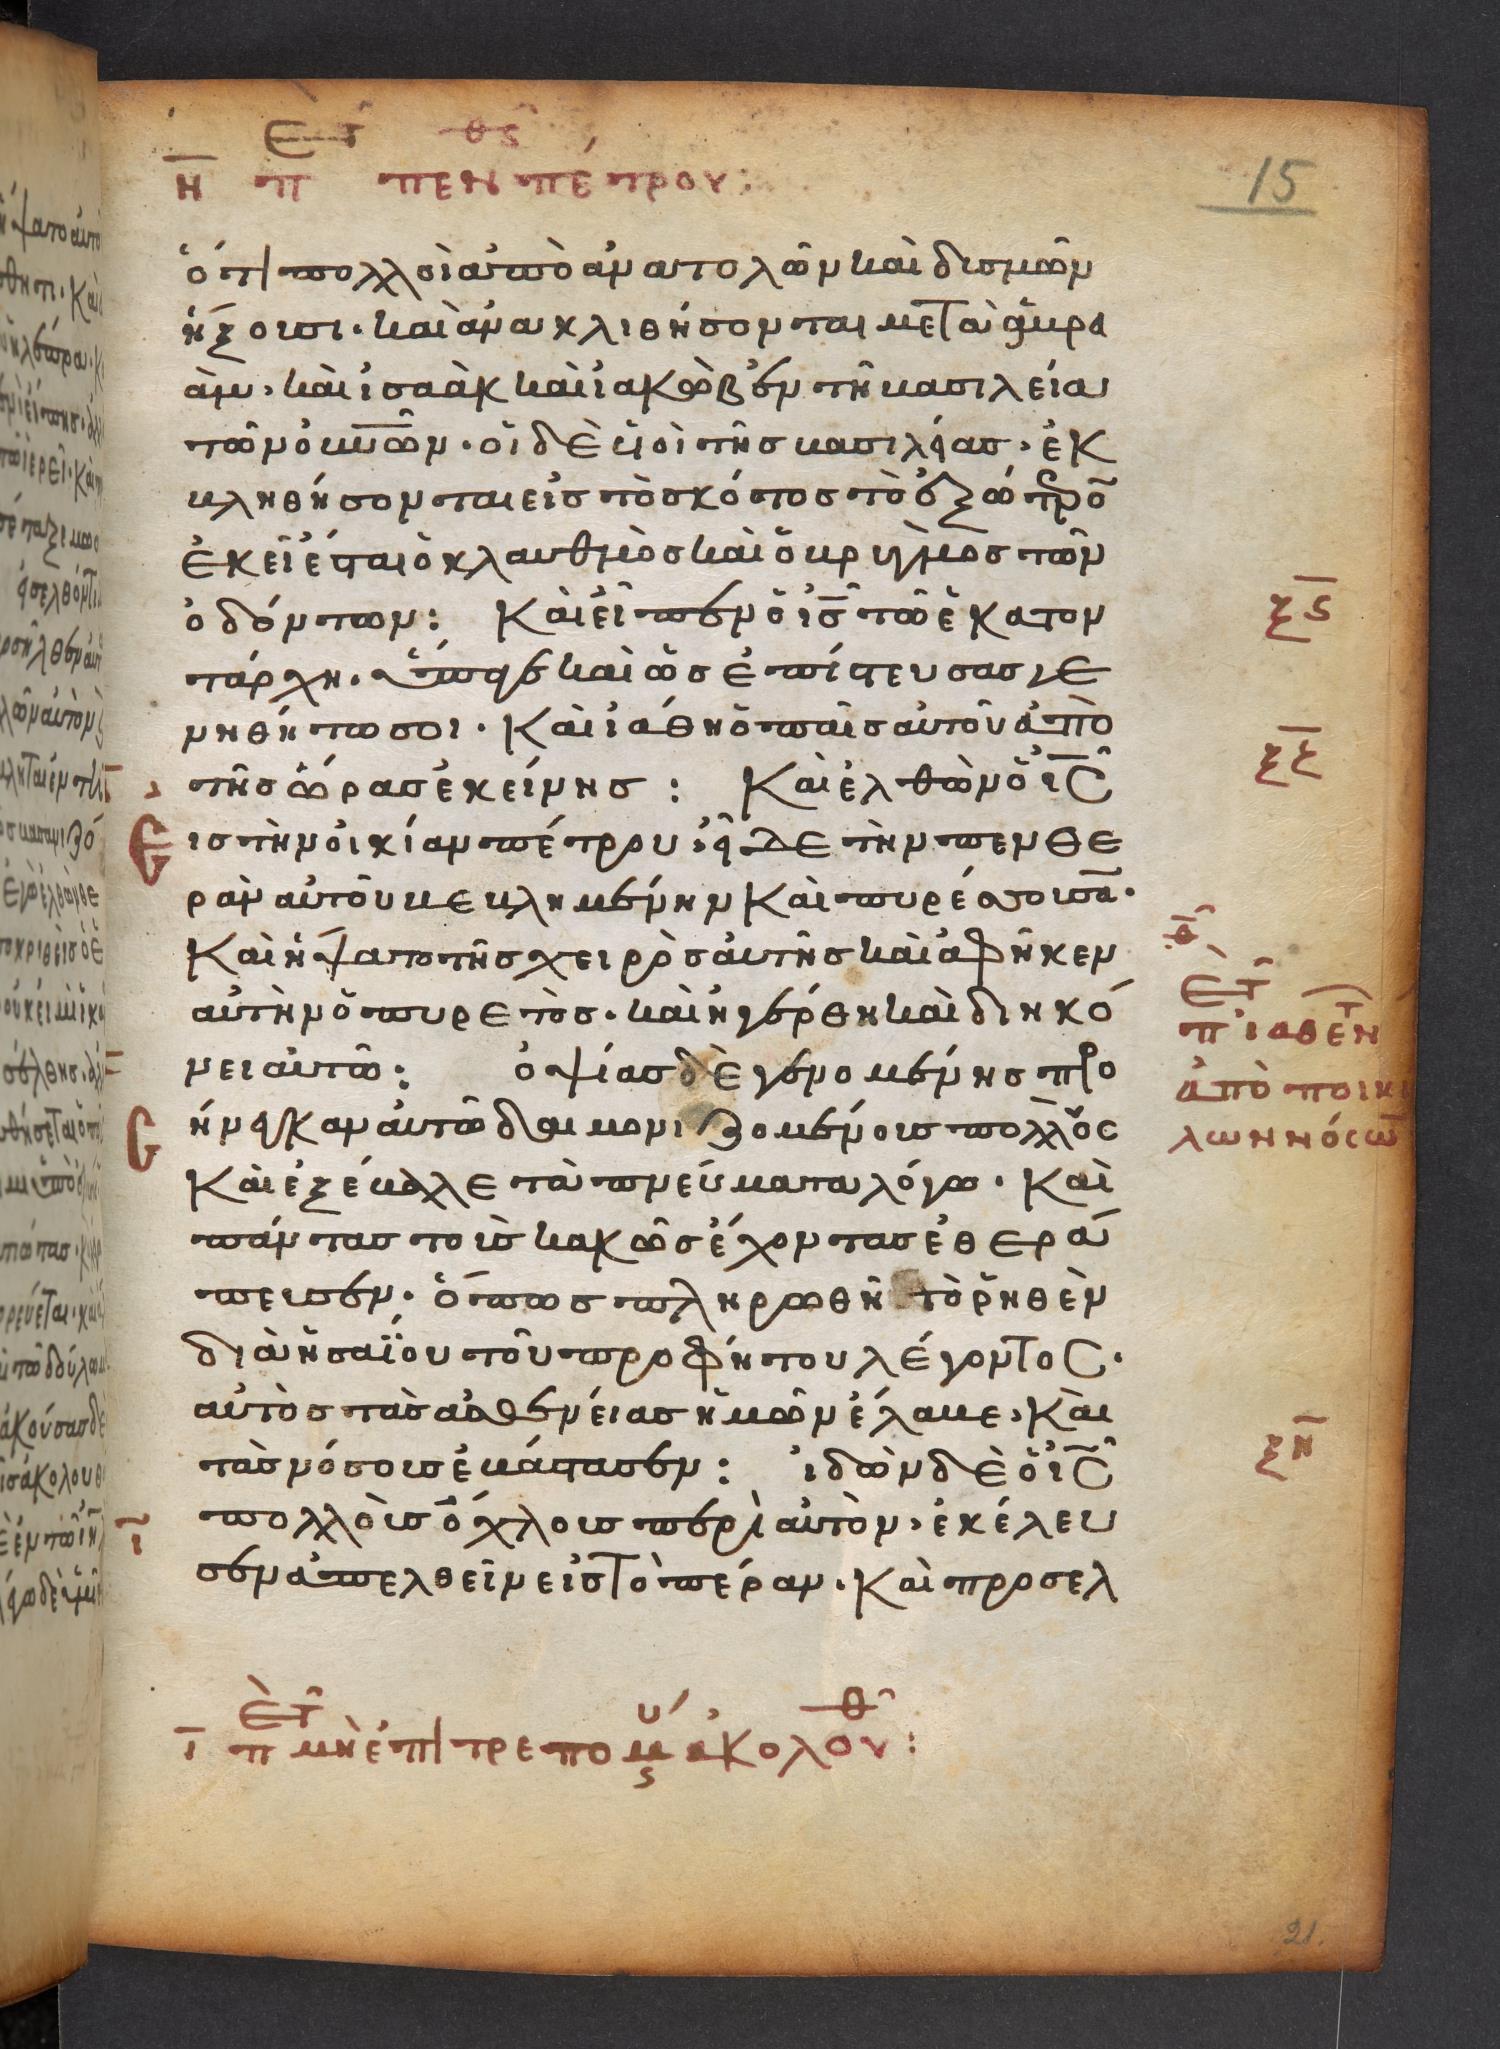 η περὶ τῆς πενθερᾶς πέτρου:
15
ὅτι πολλοὶ ἀπὸ ἀνατολῶν καὶ δισμῶν
ἥξουσι· καὶ ἀνακλιθήσονται μετὰ ἀβρα
ὰμ· καὶ ἰσαὰκ καὶ ἰακὼβ ἐν τῆ βασιλεία
τῶν ουνῶν· οἱ δὲ υἱοὶ τῆς βασιλείας· ἐκ
βληθήσονται εἰς τὸ σκότος τὸ ἐξώτερον
ἐκεῖ ἔσται ὁ κλαυθμὸς καὶ ὁ βρυγμὸς τῶν
ὀδόντων: Καὶ εἶπεν ὁ ις τῶ ἑκατον
τάρχη· ὕπαγε καὶ ὡς ἐπίστευσας γε
νηθήτω σοι· Καὶ ἰάθη ὁ παῖς αὐτοῦ ἀπὸ
τῆς ὥρας ἐκείνης: Καὶ ἐλθὼν ὁ ις
εις τὴν οἰκίαν πέτρου· εἶδε τὴν πενθε
ρὰν αὐτοῦ βεβλημένην Καὶ πυρέσσουσαν·
Καὶ ἥψατο τῆς χειρὸς αὐτῆς καὶ ἀφῆκεν
αὐτὴν ὁ πυρετὸς· καὶ ἠγέρθη καὶ διηκό
νει αὐτῶ: ὀψίας δὲ γενομένης προσ
ήνεγκαν αὐτῶ δαιμονιζομένους πολλοὺς
Καὶ ἐξέβαλε τὰ πνεύματα λόγω· Καὶ
πάντας τοὺς κακῶς ἔχοντας ἐθερά
πευσεν· ὅπως πληρωθῆ τὸ ῥηθὲν
διὰ ἡσαΐου τοῦ προφήτου λέγοντος·
αὐτὸς τὰς ἀσθενείας ἡμῶν ἔλαβε· Καὶ
τὰς νόσους ἐβάστασεν: ἰδὼν δὲ ὁ ις
πολλοὺς ὄχλους περὶ αὐτὸν· ἐκέλευ
σεν ἀπελθεῖν εἰς τὸ πέραν· Καὶ προσελ
ξς
ξζ
θ περὶ
τ ἰαθέντ
ἀπὸ ποικι
λων νόσων
ξη
ι
ι περὶ τοῦ μὴ ἐπιτρεπομένου ἀκολουθεῖν:
21.